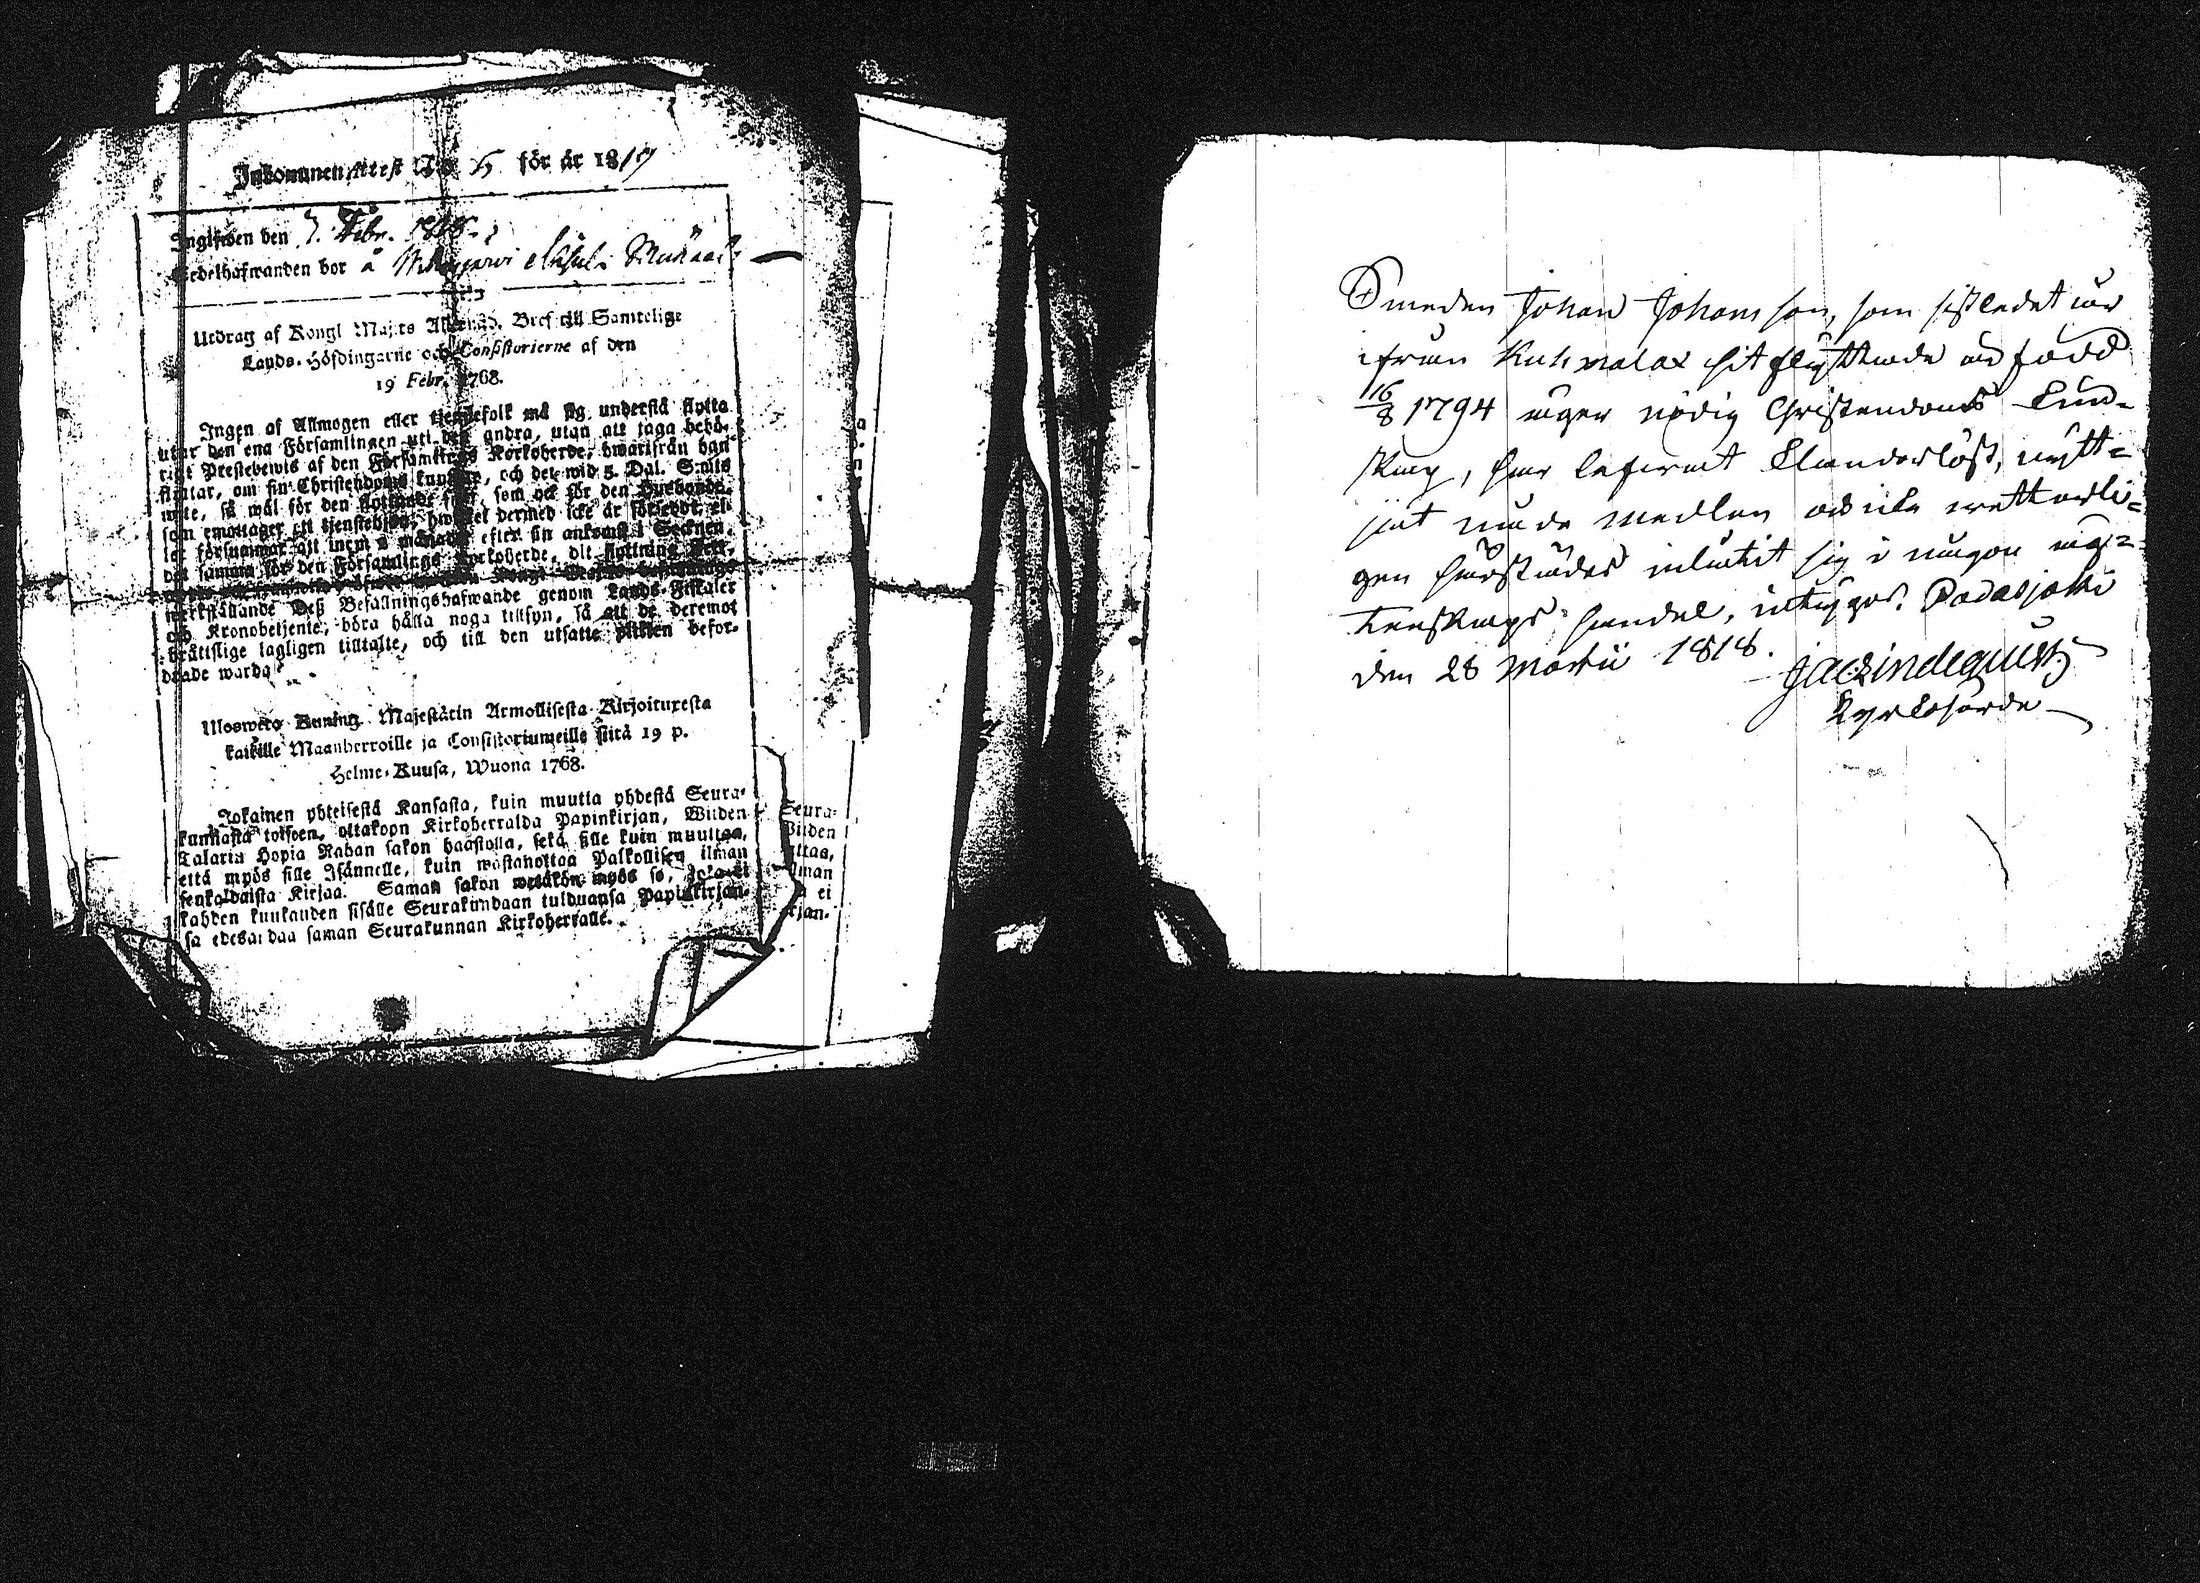 Inkommen Attest No 5 för år 1819
Ingifwen den 7. Febr. 1818
Sedelhafwanden bor å
Utdrag af Kongl Maj:ts Allernåd. Bref till Samtelige
Lands-Höfdingarne och Consistorierne af den
19 Febr. 1768.
Ingen af Allmogen eller tjenstefolk må sig understå flytta
utur den ena Församlingen uti den andra, utan att taga behö-
rigt Prestebewis af den Församlings Kyrkoherde, hwarifrån han
flyttar, om sin Christendoms kunskap, och det wid 5. Dal. S:mts
wite, så wäl för den flyttande sjelf, som ock för den Husbonde,
som emottager ett tjenstehjon, hwilket dermed icke är försedt, el-
ler försummar att inom 2 månader efter sin ankomst i Socknen,
det samma för den Församlings Kyrkoherde, dit flyttning sker,
werkställande Deß Befallningshafwande genom Lands-Fiskaler
och Kronobetjente, böra hålla noga tillsyn, så att de deremot
bråttslige lagligen tilltalte, och till den utsatte plikten befor-
drade warda.
Ulosweto Kuning. Majestätin Armollisesta Kirjoituxesta
kaikille Maanherroille ja Consistoriumeille siitä 19 p.
Helme-Kuusa, Wuona 1768.
Jokainen yhteisestä Kansasta, kuin muutta yhdestä Seura-
kunnasta toiseen, ottakopn Kirkoherralda Papinkirjan, Wiiden
Talarin Hopia Rahan sakon haastolla, sekä sille kuin muuttaa,
että myös sille Isännelle, kuin wastanottaa Palkollisen ilman
senkaldaista Kirjaa. Saman sakon wetäkön myös se, joka ei
kahden kuukauden sisälle Seurakundaan tulduansa Papinkirjan-
sa edesandaa saman Seurakunnan Kirkoherralle.
Seura-
Wiiden
uttaa,
ilman
a ei
irjan-
Smeden Johan Johansson, som sistledet år
ifrån Kuhmalax hit flyttade är född
16/8 1794 äger nödig Christendoms Kun-
skap, har lefwerat Klanderlöst, nytt-
jat nåde medlen och icke wetterli-
gen härstädes inlåtit sig i någon äg-
tenskaps handel, intygar. Padasjoki
den 28 Martii 1818.
Kyrkoherde